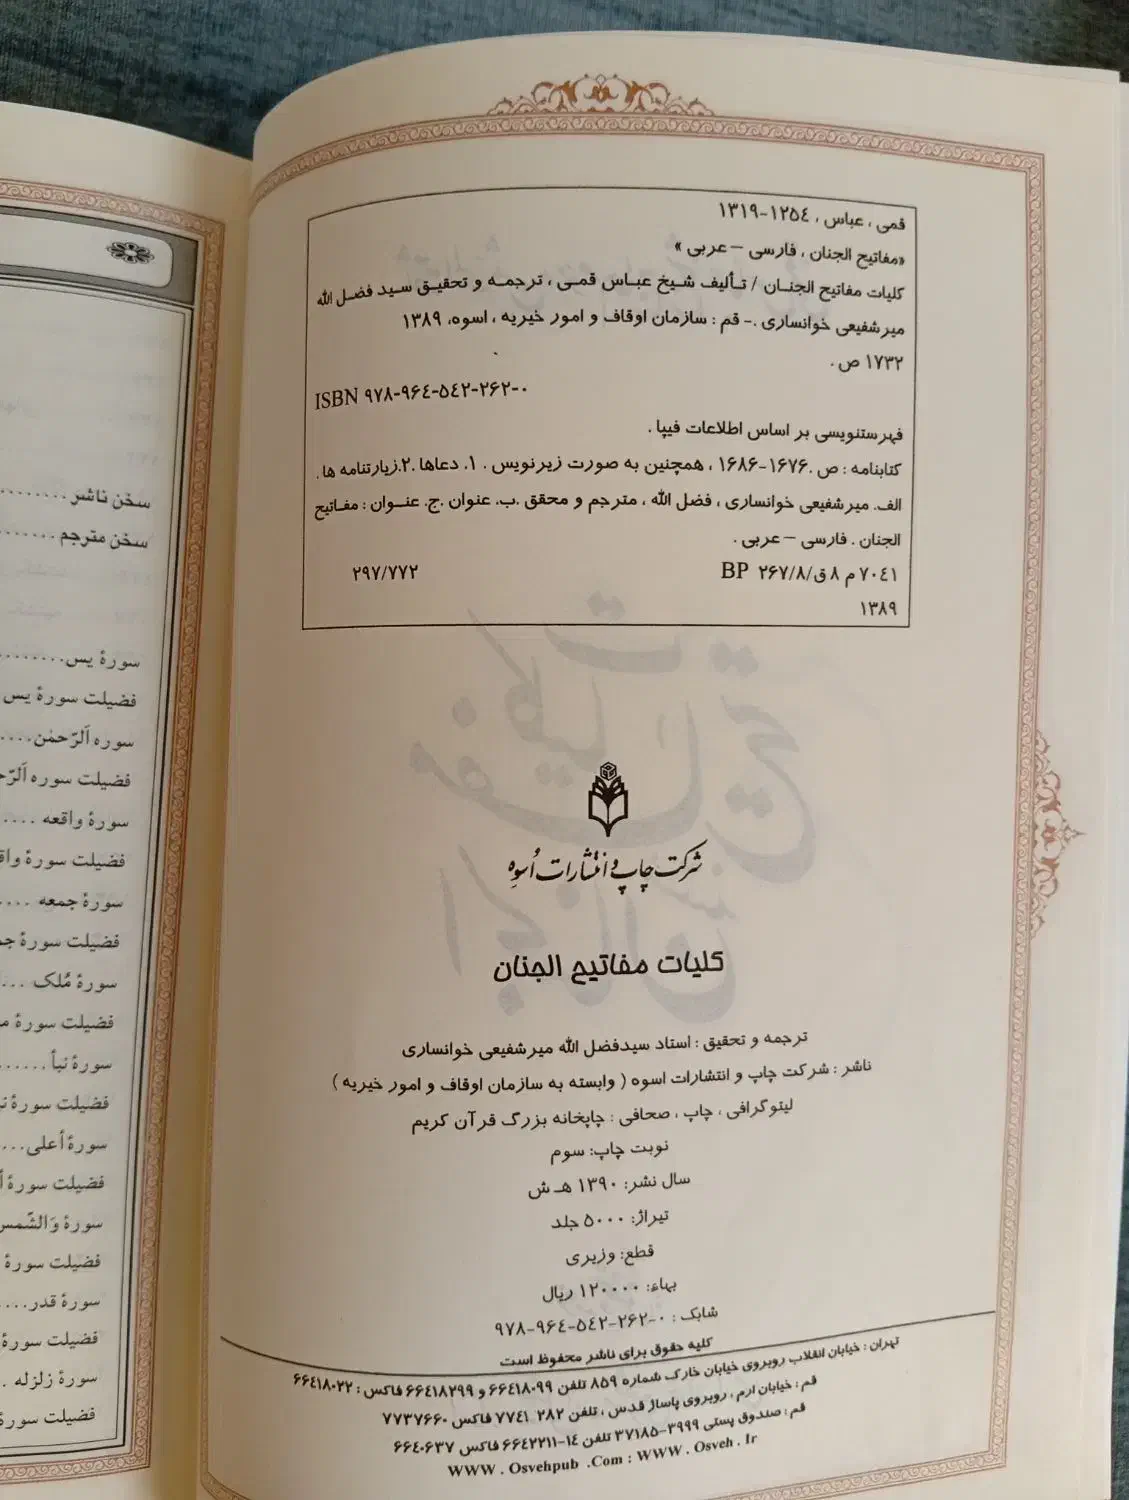 قمی ، عباس ، ۱۲۵٤-۱۳۱۹
«مفاتیح الجنان ، فارسی – عربی »
کلیات مفاتیح الجنـان / تـألیف شـیخ عبـاس قمـی ، ترجمـه و تحقیـق سـید فضـل الله
میرشفیعی خوانساری .- قم : سازمان اوقاف و امور خیریه ، اسوه، ۱۳۸۹
۱۷۳۲ ص.
ISBN ۹۷۸-۹۶٤-۵٤۲-۲۶۲-۰
فهرستنویسی بر اساس اطلاعات فیپا .
کتابنامه : ص .۱۶۷۶-۱۶۸۶ ، همچنین به صورت زیرنویس . ۱. دعاها .۲.زیارتنامه ها .
الف. میرشفیعی خوانساری ، فضل الله ، مترجم و محقق .ب. عنوان .ج. عنـوان : مفـاتیح
الجنان . فارسی – عربی .
۷۰٤۱ م ۸ ق/۲۶۷/۸ BP ۲۹۷/۷۷۲
۱۳۸۹
شرکت چاپ و انتشارات اُسوه
کلیات مفاتیح الجنان
ترجمه و تحقیق : استاد سیدفضل الله میرشفیعی خوانساری
ناشر : شرکت چاپ و انتشارات اسوه ( وابسته به سازمان اوقاف و امور خیریه )
لیتوگرافی ، چاپ ، صحافی : چاپخانه بزرگ قرآن کریم
نوبت چاپ: سوم
سال نشر: ۱۳۹۰ هـ ش
تیراژ: ۵۰۰۰ جلد
قطع: وزیری
بهاء: ۱۲۰۰۰۰ ریال
شابک : ۰-۲۶۲-۵٤۲-۹۶٤-۹۷۸
کلیه حقوق برای ناشر محفوظ است
تهران : خیابان انقلاب روبروی خیابان خارک شماره ۸۵۹ تلفن ۶۶٤۱۸۰۹۹ و ۶۶٤۱۸۲۹۹ فاکس : ۶۶٤۱۸۰۲۲
قم : خیابان ارم ، روبروی پاساژ قدس ، تلفن ۲۸۲ ۷۷٤۱ فاکس ۷۷۳۷۶۶۰
قم : صندوق پستی ۳۹۹۹-۳۷۱۸۵ تلفن ۱٤-۶۶٤۲۲۱۱ فاکس ۶۶٤۰۶۳۷
WWW . Osvehpub .Com : WWW . Osveh . Ir
سخن ناشر ........
سخن مترجم .......
سورۀ یس........
فضیلت سورۀ یس
سوره اَلرّحمٰن....
فضیلت سوره اَلرّ
سورۀ واقعه ....
فضیلت سورۀ
سورۀ جمعه ....
فضیلت سورۀ
سورۀ مُلک ...
فضیلت سورۀ
سورۀ نبأ ......
فضیلت سورۀ
سورۀ أعلی...
فضیلت سورۀ
سورۀ وَالشّمس
فضیلت سورۀ
سورۀ قدر....
فضیلت سورۀ
سورۀ زلزله .
فضیلت سورۀ